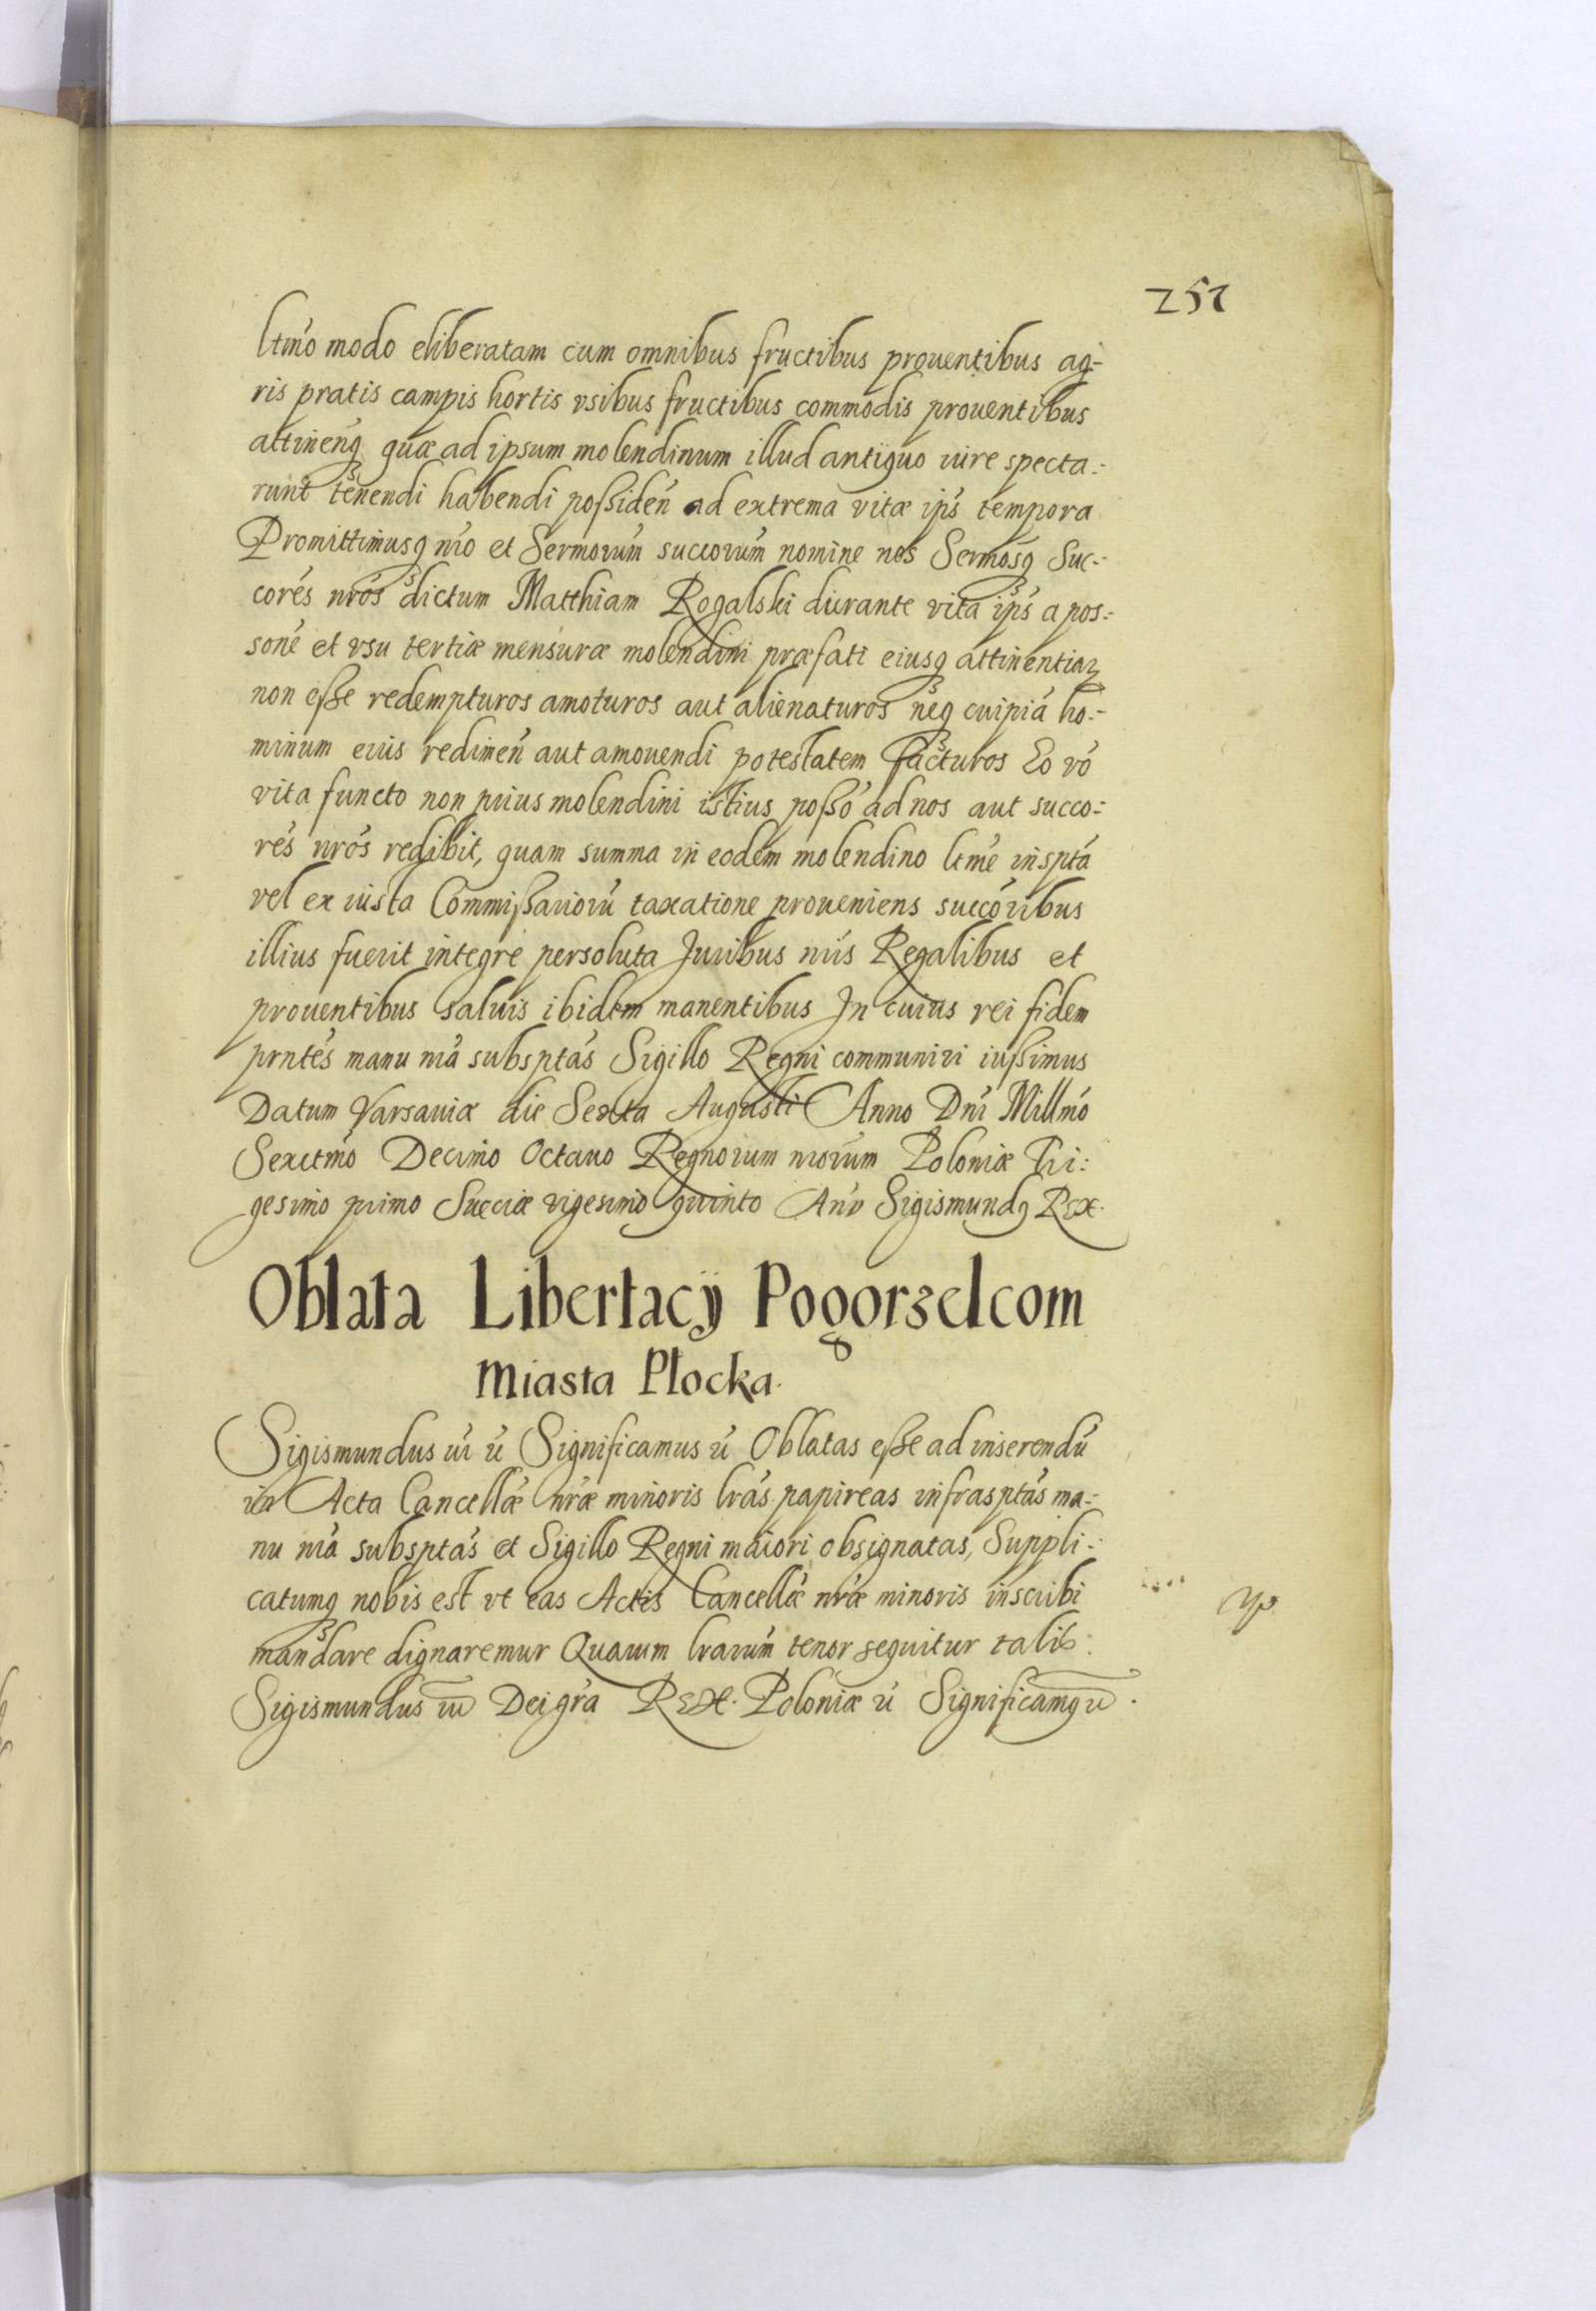 257
ltmó modo eliberatam cum omnibus fructibus prouentibus ag-
ris pratis campis hortis vsibus fructibus commodis prouentibus
attinenq quæ ad ipsum molendinum illud antiquo iure specta-
runt tenendi habendi poßiden ad extrema vitæ ips tempora
Promittimusq nro et Sermorum succorum nomine nos Sermosq Suc-
cores nros dictum Matthiam Rogalski durante vita ips a pos-
sone et vsu tertiæ mensuræ molendini præfati eiusq attinentiar
non eße redempturos amoturos aut alienaturos neq cuipiá ho-
minum eius redimen aut amouendi potestatem facturos Eo vó
vita functo non prius molendini istius poßo ad nos aut succo-
res nros redibit, quam summa in eodem molendino ltme inspta
vel ex iusta Commißariorú taxatione proueniens succoribus
illius fuerit integre persoluta Juribus nris Regalibus et
prouentibus saluis ibidem manentibus Jn cuius rei fidem
prntes manu nra subsptas Sigillo Regni communiri iußimus
Datum Varsauiæ die Sexta Augusti Anno Dni Millmo
Sexctmo Decimo Octauo Regnorum nrorum Poloniæ Tri-
gesimo primo Sueciæ vigesimo quinto Anno Sigismundq Rex.
Oblata Libertacÿ Pogorzelcom
Miasta Płocka.
Sigismundus iii ú Significamus ú Oblatas eße ad inserendú
in Acta Cancellæ nræ minoris lras papireas infrasptas ma-
nu nra subsptas et Sigillo Regni maiori obsignatas, Suppli-
catumq nobis est vt eas Actis Cancellæ nræ minoris inscribi
mandare dignaremur Quarum lrarum tenor sequitur talis:
Sigismundus iii Dei gra Rex. Poloniæ ú Significamq ú.